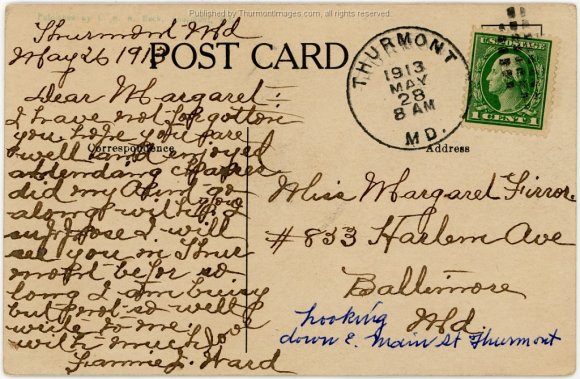 Published by ThurmontImages.com, all rights reserved
Published by C. M. Mackley
Thurmont Md
May 26 1913
POST CARD
THURMONT
1913
MAY
28
8 AM
MD.
U.S. POSTAGE
1 CENT 1
Dear Margaret:
I have not forgotten
you hope you are
well and enjoyed
attendang
Correspondence
did my Aunt go
along with you I
suppose I will
see you in Thur
mont befor so
long I am busy
but not so well
write to me.
with much love
Fannie J. Ward
Address
Miss Margaret Firror
#833 Harlem Ave
Baltimore
Md
Looking
down E. Main St Thurmont